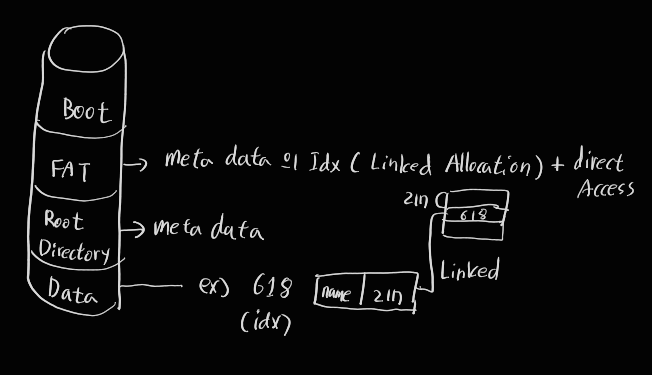 Boot
FAT
meta data 의 Idx ( Linked Allocation) + direct
Access
217
618
Root
Directory
meta data
Linked
Data
ex) 618
(idx)
name 217